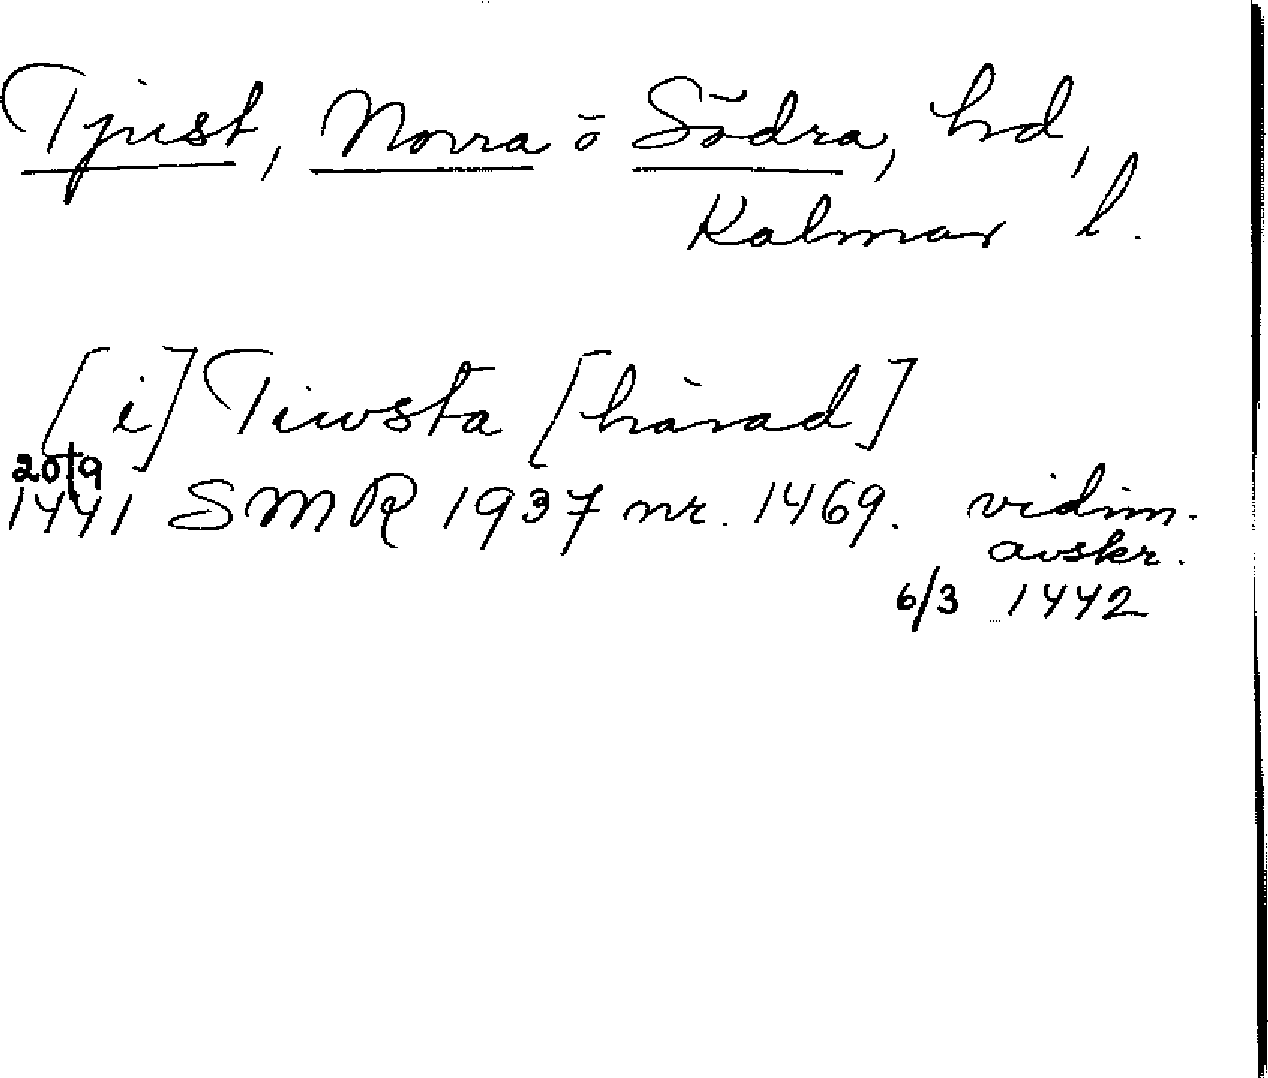 Tjust, Norra o Södra, hd,
Kalmar l.
[i] Tiwsta [härad]
20/9
1441 SMR 1937 nr. 1469. vidim.
avskr.
6/3 1442